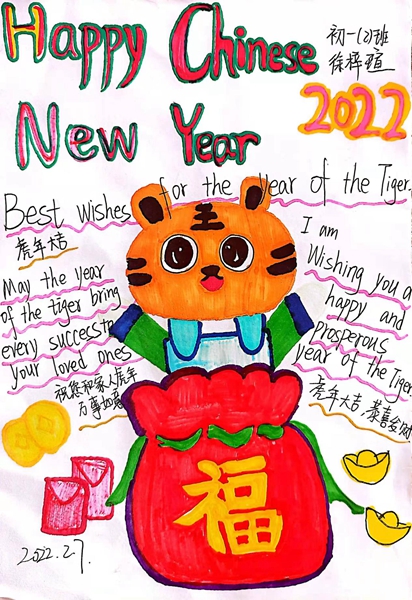 Happy Chinese
初一(2)班
徐梓瑄
New Year
2022
Best wishes for the year of the Tiger.
虎年大吉
May the year
of the tiger bring
every success to
your loved ones
祝您和家人虎年
万事如意
I am
Wishing you a
happy and
prosperous
year of the Tiger.
虎年大吉，恭喜发财
王
福
2022.2.7.